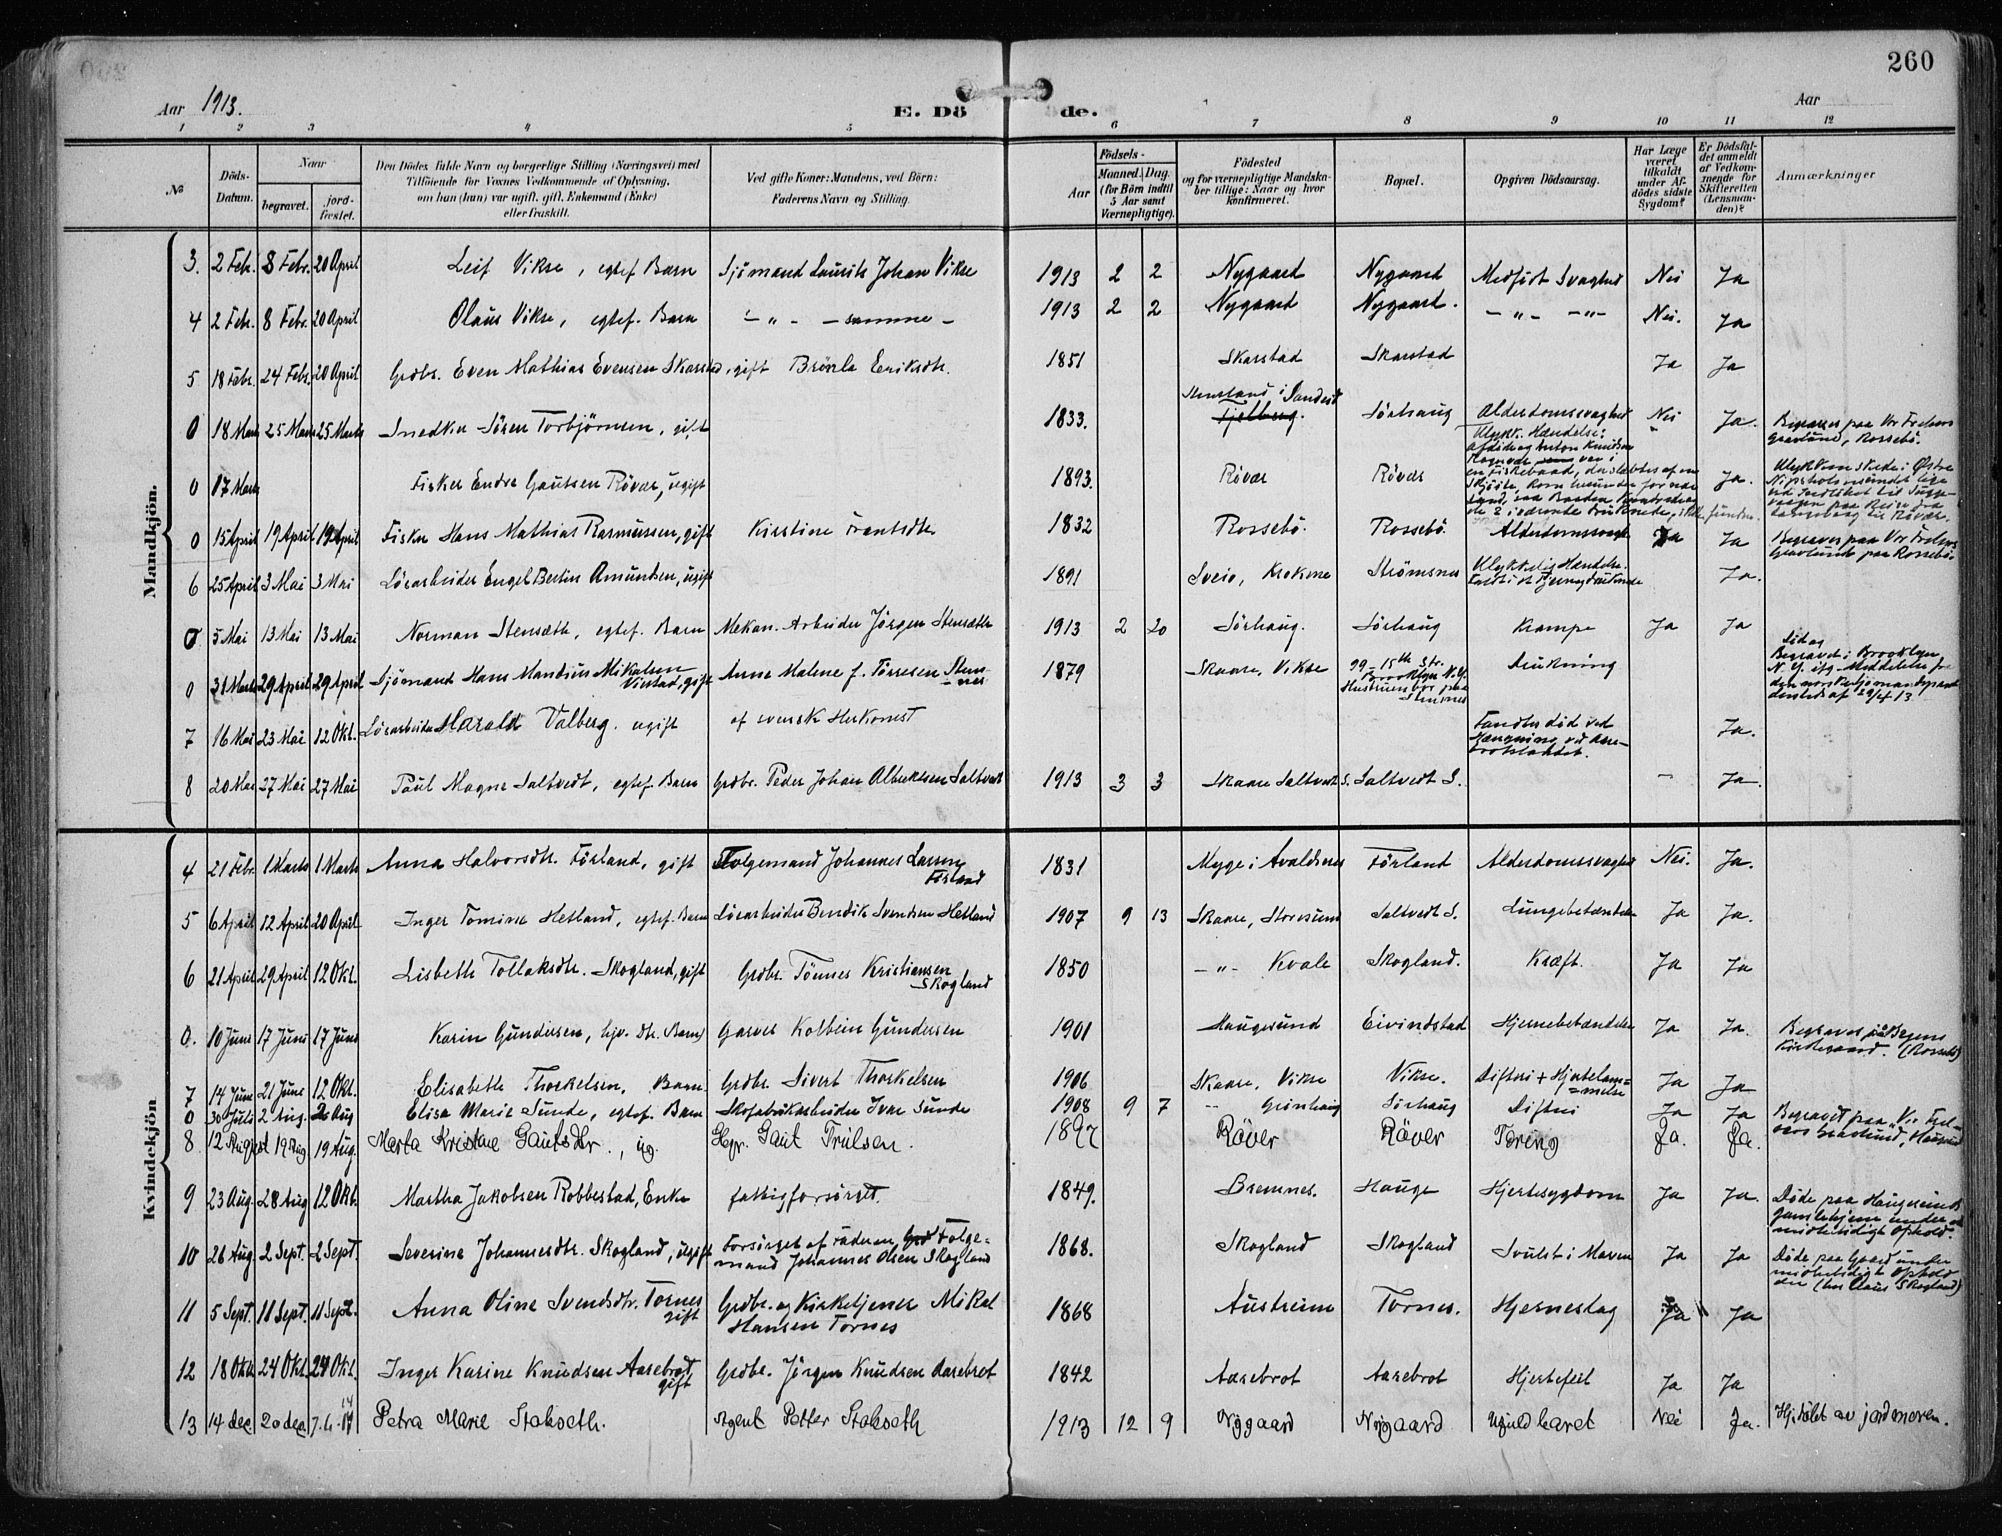 260
Aar 1913.
E. Döde.
Aar
1 2 3 4 5 6 7 8 9 10 11 12
No
Döds-Datum.
Naar
begravet.
jord-fæstet.
Den Dödes fulde Navn og borgerlige Stilling (Næringsvei) med
Tilföiende for Voxnes Vedkommende af Oplysning,
om han (hun) var ugift, gift, Enkemand (Enke)
eller fraskilt.
Ved gifte Koner: Mandens, ved Börn:
Faderens Navn og Stilling.
Födsels-
Aar
Maaned. Dag.
(for Börn indtil
5 Aar samt
Værnepligtige).
Födested
og for værnepligtige Mandska-
ber tillige: Naar og hvor
konfirmeret.
Bopæl.
Opgiven Dödsaarsag.
Har Læge
været
tilkaldt
under Af-
dödes sidste
Sygdom?
Er Dödsfal-
det anmeldt
af Vedkom-
mende for
Skifteretten
(Lensman-
den)?
Anmærkninger
Mandkjön.
3. 2 Feb. 8 Febr. 20 April Leif Vikse, egtef. Barn Sjömand Laurits Johan Vikse 1913 2 2 Nygaard Nygaard Medfödt Svaghed Nei Ja
4 2 Feb. 8 Febr. 20 April Olaus Vikse, egtef. Barn - " - - samme - 1913 2 2 Nygaard Nygaard. - " - - " - Nei. Ja
5 18 Febr. 24 Febr. 20 April Grdbr. Even Mathias Evensen Skarstad, gift Brönla Eriksdtr. 1851 Skarstad Skarstad Ja Ja
0 18 Marts 25 Marts 25 Marts Snedker Sören Torbjörnsen, gift 1833. i Sandeid Fjelberg. Sörhaug Alderdomssvaghed Nei Ja. Begraves paa Vor Frelsers
Gravlund, Rossebö.
0 17 Marts Fisker Endre Gautsen Rövær, ugift 1893. Rövær Rövær Ulykk. Hændelse:
Afdöde og Anton Knudsen
Rövær var i
en Fiskebaad, der slæbtes af en
Skjöite, Kom herunder for nær
Land, saa Baaden kantrede og
de 2 i værende druknede, ikke funden. Ja. Ulykken skede i Østre
0 15 April 19 April 19 April Fisker Hans Mathias Rasmussen, gift Kirstine Frantsdtr 1832 Rossebö. Rossebö. Alderdomssvagh. Ja Ja Begraves paa Vor Frelsers
Gravlund paa Rossebö.
6 25 April 3 Mai 3 Mai Lösarbeider Engel Bertin Amundsen, ugift 1891 Sveio, Strömsnes Ulykkelig Hændelse. Ja.
0 5 Mai 13 Mai 13 Mai Norman Stensæth, egtef. Barn Mekan. Arbeider Jörgen Stensæth 1913 2 20 Sörhaug. Sörhaug Krampe Ja Ja
0 31 Marts 29 April 29 April Sjömand Hans Mandius Mikalsen
Vikstad, gift Anne Malene f. Törresen Stem-
nes 1879 Skaare, Vikse 99-15th Str.
Brooklyn N.Y.
Hustruen bor paa
Stemnes Drukning Död og
Begravet i Brooklyn
N.Y. ifg. Meddelelse fra
den norske Sjömandspræst
dersteds af 29/4 13.
7 16 Mai 23 Mai 12 Okt. Lösarbeider Harald Valberg. ugift af svensk Herkomst Fandtes död ved
Hængning ved Aare-
Ja.
8 20 Mai 27 Mai 27 Mai Paul Magne Saltvedt, egtef. Barn Grdbr. Peder Johan Albrektsen Saltvedt 1913 3 3 Skaare Saltvedt S. Saltvedt S. - Ja.
Kvindekjön
4 21 Febr. 1 Marts 1 Marts Anna Halvorsdtr. Förland, gift Folgemand Johannes Larsen
Förland 1831 Myge i Avaldsnes Förland Alderdomssvaghed Nei. Ja.
5 6 April 12 April 20 April Inger Tomine Hetland, egtef. Barn Lösarbeider Bendik Svendsen Hetland 1907 9 13 Skaare, Storesund Saltvedt S. Lungebetændelse Ja Ja.
6 21 April 29 April 12 Okt. Lisbeth Tollaksdtr. Skogland, gift Grdbr. Tönnes Kristiansen
Skogland 1850 - " - Kvale Skogland. Kræft. Ja Ja
0. 10 Juni 17 Juni 17 Juni Karin Gundersen, hjv. dtr. Barn) Garver Kolbein Gundersen 1901 Haugesund Eivindstad Hjernebetændelse Ja Ja. Begraves på Byens
Kirkegaard. (Rossebö)
7 14 Juni 21 Juni 12 Okt. Elisabeth Thorkelsen, Barn Grdbr. Sivert Thorkelsen 1906 Skaare, Vikse Vikse. Difteri + Hjertelam-
melse Ja Ja
0 30 Juli 2 Aug. 2 Aug Elisa Marie Sunde, egtef. Barn Skofabrikarbeider Ivar Sunde 1908 9 7 - " - Grönhaug Sörhaug Difteri Ja Ja Begravet paa "Vor Frel-
sers Gravlund, Haugesund
8 12 August 19 Aug 19 Aug. Marta Kristine Gautsdtr., ug. Hgr. Gaut Trulsen. 1897 Röver Röver Tæring Ja. Ja.
9 23 Aug. 28 Aug 12 Okt. Martha Jakobsen Robbestad, Enke fattigforsörget. 1849. Bremnes. Hauge Hjertesygdom Ja Ja. Döde paa Haugesunds
Gamlehjem under et
midlertidigt Ophold.
10 26 Aug. 2 Sept. 2 Sept. Severine Johannesdtr. Skogland, ugift Forsörget af Faderen, Grd Folge-
mand Johannes Olsen Skogland 1868. Skogland Skogland Svulst i Maven Ja Ja Döde paa Gaard under
midlertidigt Ophold
der (hos Claus Skogland)
11 5 Sept. 11 Sept. 11 Sept. Anna Oline Svendsdtr. Tornes
gift Grdbr. og Kirketjener Mikal
Hansen Tornes 1868 Austreim Tornes. Hjerneslag Ja Ja
12 18 Okt. 24 Okt. 24 Okt. Inger Karine Knudsen Aarebrot
gift Grdbr. Jörgen Knudsen Aarebrot 1842 Aarebrot Aarebrot Hjertefeil Ja Ja
13 14 dec. 20 dec. 7.6.14 Petra Marie Stakseth. Agent Petter Stakseth 1913 12 9 Nygaard Nygaard Ufuldbaaret Nei Ja. Hj.döbt av jordmoren.